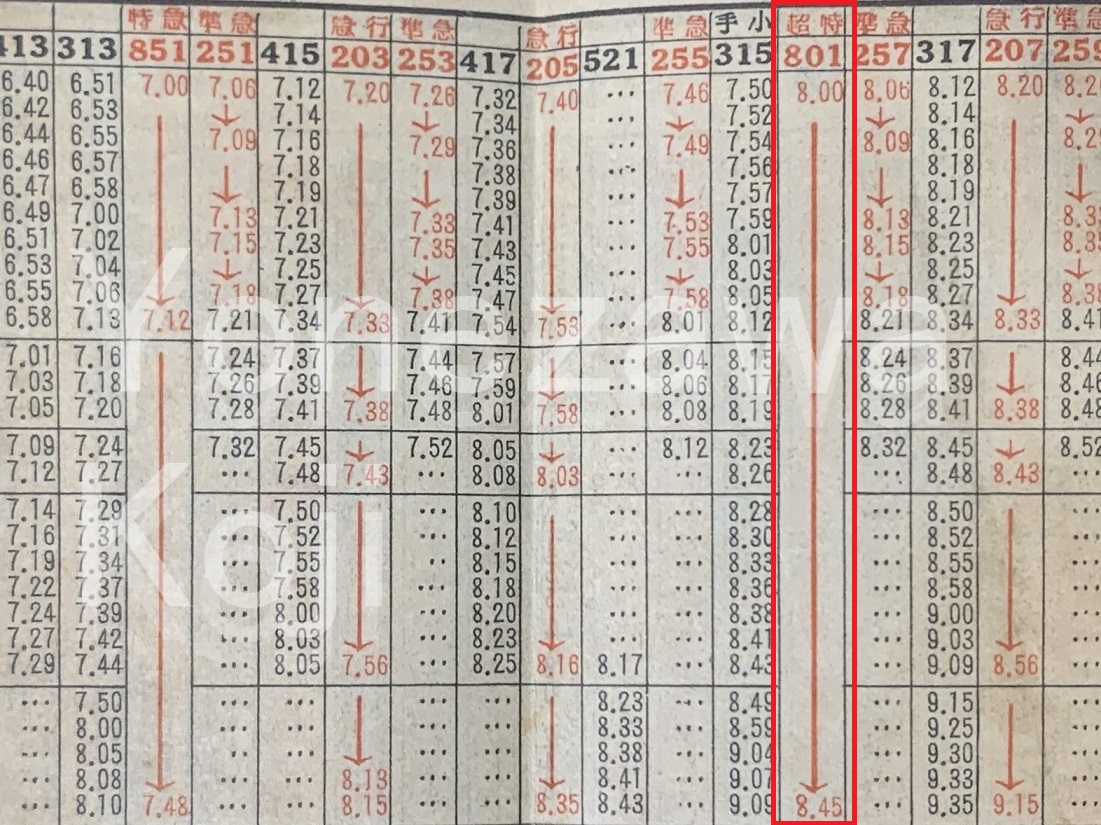 特急 準急 急行 準急 急行 準急 手小 超特 準急 急行 準急
413 313 851 251 415 203 253 417 205 521 255 315 801 257 317 207 259
6.40 6.51 7.00 7.06 7.12 7.20 7.26 7.32 7.40 … 7.46 7.50 8.00 8.06 8.12 8.20
6.42 6.53 7.14 7.34 … 7.52 8.14
6.44 6.55 7.09 7.16 7.29 7.36 … 7.49 7.54 8.09 8.16
6.46 6.57 7.18 7.38 … 7.56 8.18
6.47 6.58 7.19 7.39 … 7.57 8.19
6.49 7.00 7.13 7.21 7.33 7.41 … 7.53 7.59 8.13 8.21
6.51 7.02 7.15 7.23 7.35 7.43 … 7.55 8.01 8.15 8.23
6.53 7.04 7.25 7.45 … 8.03 8.25
6.55 7.06 7.18 7.27 7.38 7.47 … 7.58 8.05 8.18 8.27 8.38
6.58 7.13 7.12 7.21 7.34 7.33 7.41 7.54 7.53 … 8.01 8.12 8.21 8.34 8.33 8.41
7.01 7.16 7.24 7.37 7.44 7.57 … 8.04 8.15 8.24 8.37 8.44
7.03 7.18 7.26 7.39 7.46 7.59 … 8.06 8.17 8.26 8.39 8.46
7.05 7.20 7.28 7.41 7.38 7.48 8.01 7.58 … 8.08 8.19 8.28 8.41 8.38 8.48
7.09 7.24 7.32 7.45 7.52 8.05 … 8.12 8.23 8.32 8.45 8.52
7.12 7.27 … 7.48 7.43 … 8.08 8.03 … … 8.26 … 8.48 8.43 …
7.14 7.29 … 7.50 … 8.10 … … 8.28 … 8.50 …
7.16 7.31 … 7.52 … 8.12 … … 8.30 … 8.52 …
7.19 7.34 … 7.55 … 8.15 … … 8.33 … 8.55 …
7.22 7.37 … 7.58 … 8.18 … … 8.36 … 8.58 …
7.24 7.39 … 8.00 … 8.20 … … 8.38 … 9.00 …
7.27 7.42 … 8.03 … 8.23 … … 8.41 … 9.03 …
7.29 7.44 … 8.05 7.56 … 8.25 8.16 8.17 … 8.43 … 9.09 8.56 …
… 7.50 … … … … 8.23 … 8.49 … 9.15 …
… 8.00 … … … … 8.33 … 8.59 … 9.25 …
… 8.05 … … … … 8.38 … 9.04 … 9.30 …
… 8.08 … … 8.13 … … 8.41 … 9.07 … 9.33 …
… 8.10 7.48 … … 8.15 … … 8.35 8.43 … 9.09 8.45 … 9.35 9.15 …
Yonezawa
Koji